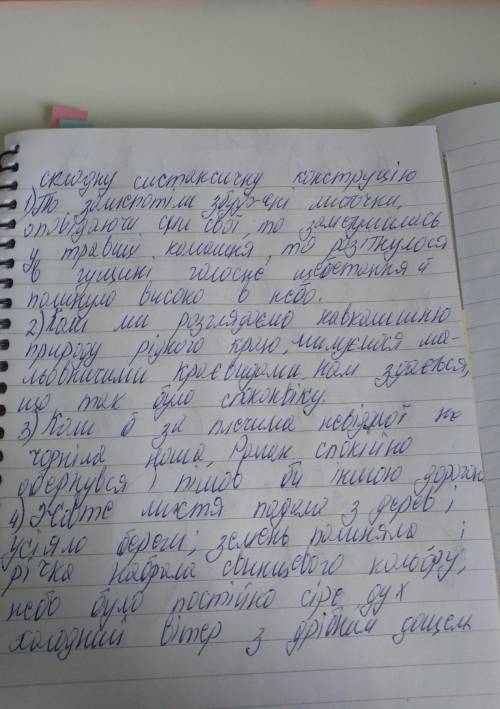 складну синтаксичну конструцію
1) То защєпотіли листочки,
оповідаючи сни свої, то заметушилась
у травиці комашня, то розітнулося
в гущині голосне щебетання й
полинуло високо в небо.
2) Коли ми розглядаємо навколишню
природу рідного краю, милуємося ма-
льовничими краєвидами, нам здається,
що так було споконвіку.
3) Коли б за плечима невідної не
чорніла ноша, Роман спокійно
обернувся і пішов би іншою дорогою
4) Жовте листя падало з дерев і
усіяло береги; зелень полиняла і
річка набрала свинцевого кольору,
небо було постійно сіре, дух
холодний вітер з дрібним дощем